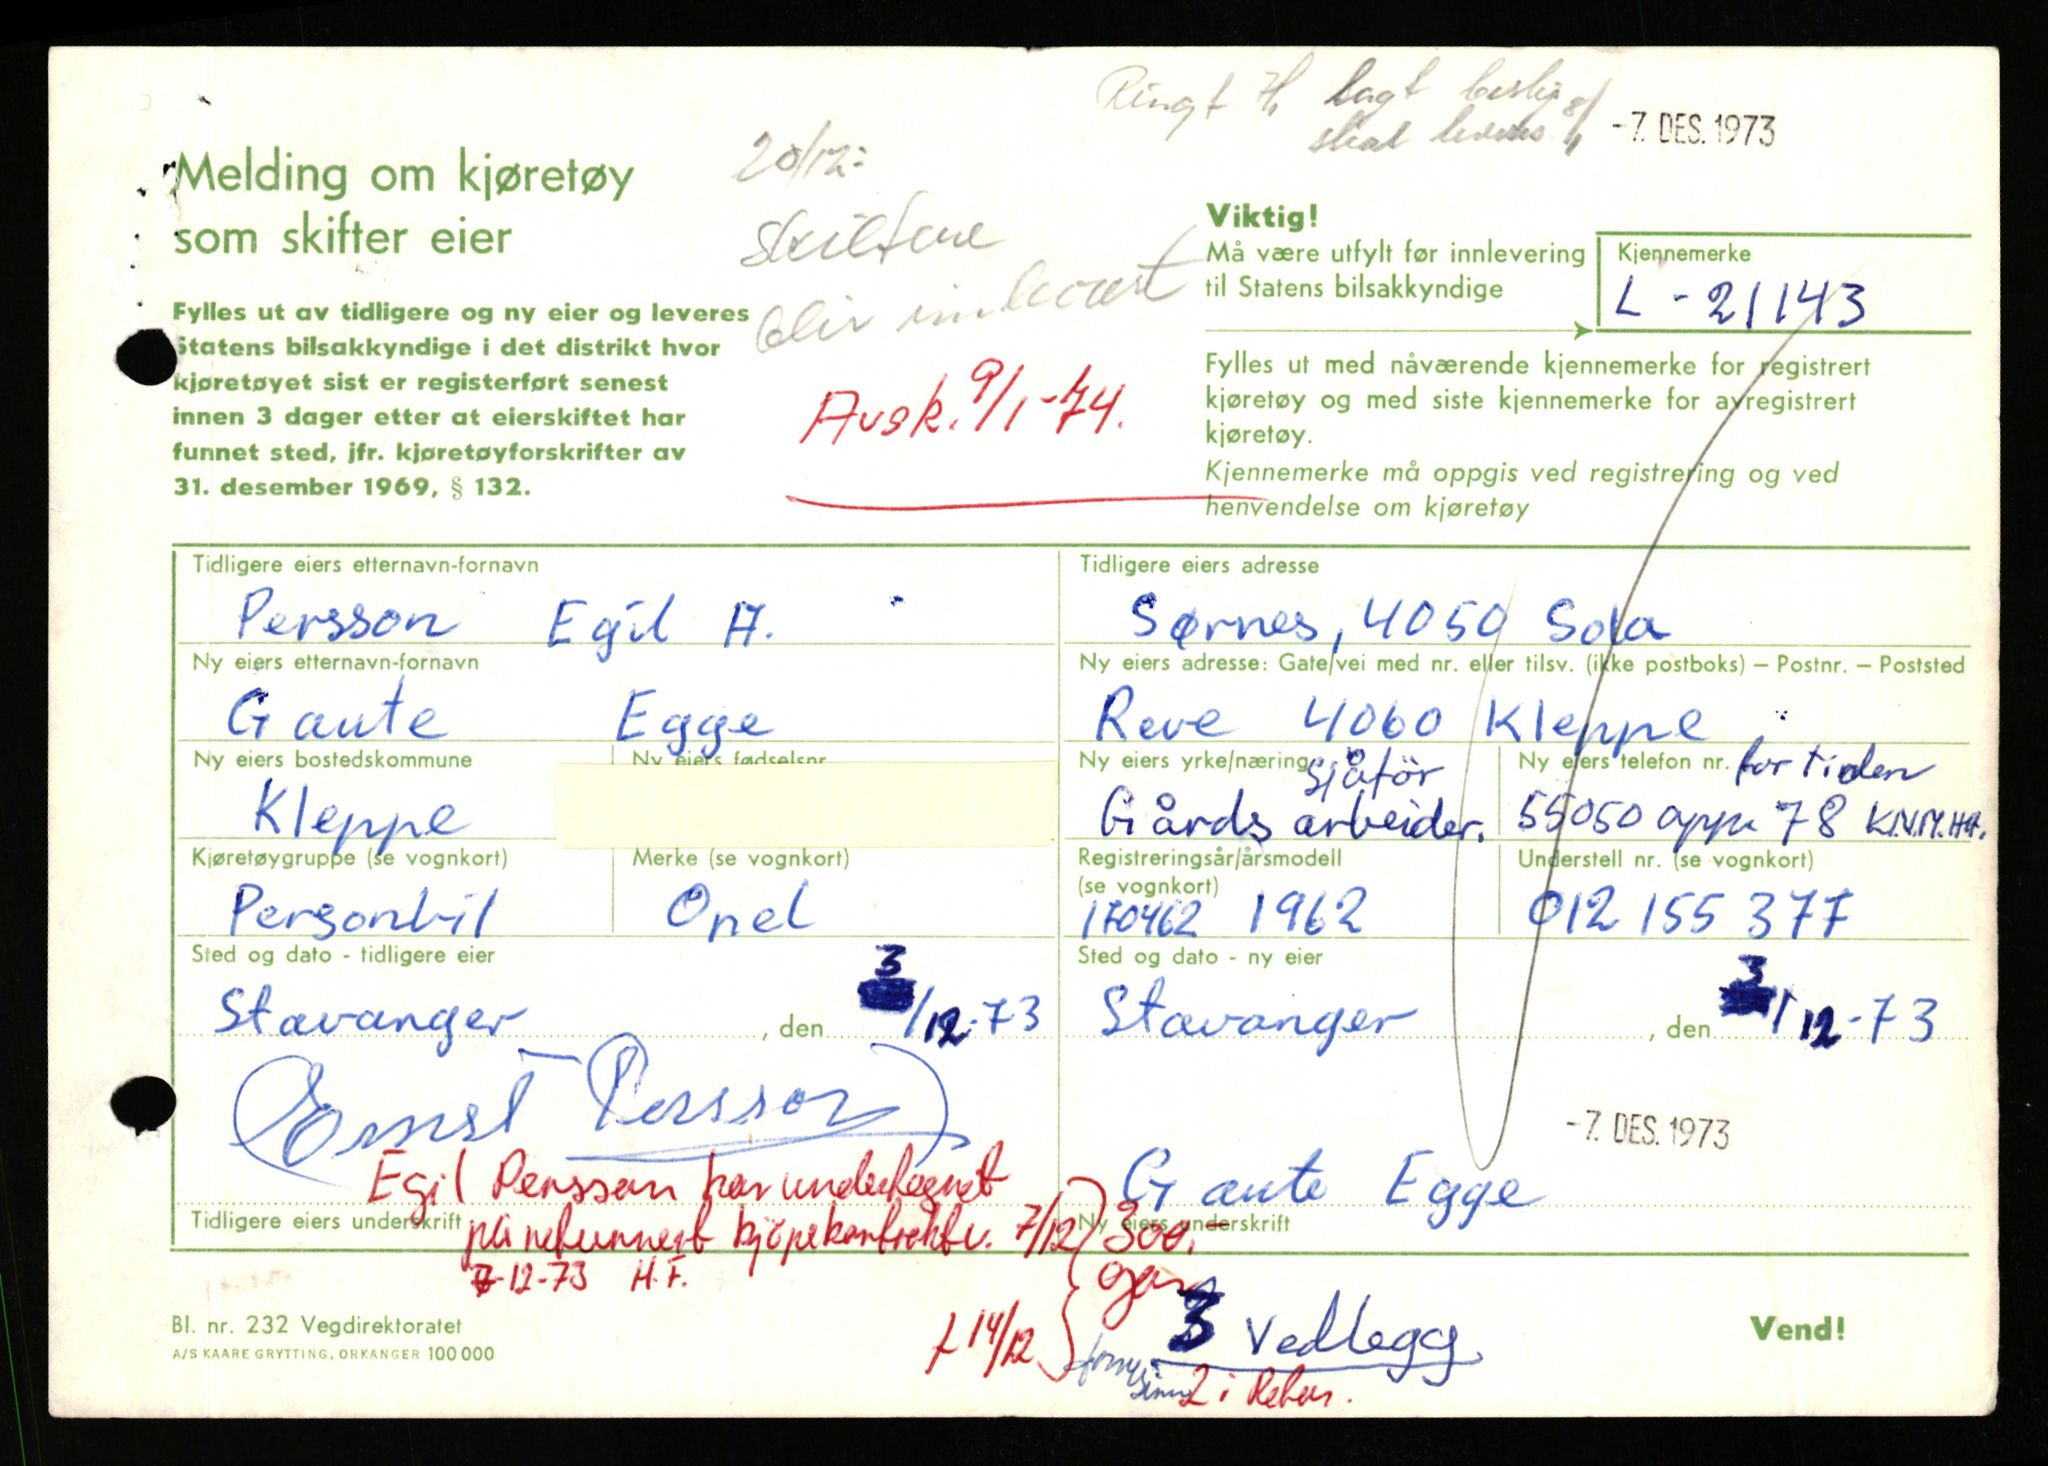 Ringt 7/1 sagt beskj
skal leveres 8/1
-7. DES. 1973
20/12:
skiltene
blir innlevert
Melding om kjøretøy
som skifter eier
Viktig!
Må være utfylt før innlevering
til Statens bilsakkyndige
Kjennemerke
L - 21143
Fylles ut av tidligere og ny eier og leveres
Statens bilsakkyndige i det distrikt hvor
kjøretøyet sist er registerført senest
innen 3 dager etter at eierskiftet har
funnet sted, jfr. kjøretøyforskrifter av
31. desember 1969, § 132.
Avsk. 9/1-74.
Fylles ut med nåværende kjennemerke for registrert
kjøretøy og med siste kjennemerke for avregistrert
kjøretøy.
Kjennemerke må oppgis ved registrering og ved
henvendelse om kjøretøy
Tidligere eiers etternavn-fornavn
Persson Egil A.
Tidligere eiers adresse
Sørnes, 4050 Sola
Ny eiers etternavn-fornavn
Gaute Egge
Ny eiers adresse: Gate/vei med nr. eller tilsv. (ikke postboks) – Postnr. – Poststed
Reve 4060 Kleppe
Ny eiers bostedskommune
Kleppe
Ny eiers fødselsnr.
Ny eiers yrke/næring
sjåfør
Gårdsarbeider.
Ny eiers telefon nr.
for tiden
55050 app. 78 K.N.M.H.H.
Kjøretøygruppe (se vognkort)
Personbil
Merke (se vognkort)
Opel
Registreringsår/årsmodell
(se vognkort)
170462 1962
Understell nr. (se vognkort)
012 155 377
Sted og dato - tidligere eier
Stavanger, den 3/12-73
Sted og dato - ny eier
Stavanger, den 3/12-73
Ernst Persson
-7. DES. 1973
Egil Persson har undertegnet
Gaute Egge
Tidligere eiers underskrift
Ny eiers underskrift
på returnert kjøpekontrakt v. 7/12
300,-
7-12-73 H.F.
gen
Bl. nr. 232 Vegdirektoratet
A/S KAARE GRYTTING, ORKANGER 100 000
14/12
3 Vedlegg
2 i Retur.
Vend!